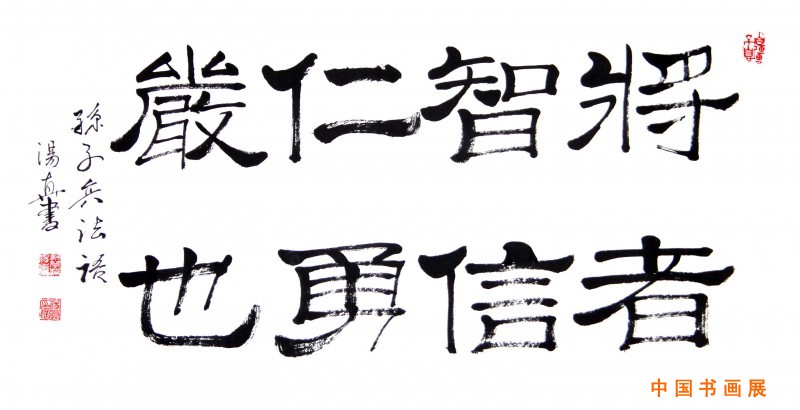 將者
智信
仁勇
嚴也
孫子兵法語
湯真書
中国书画展